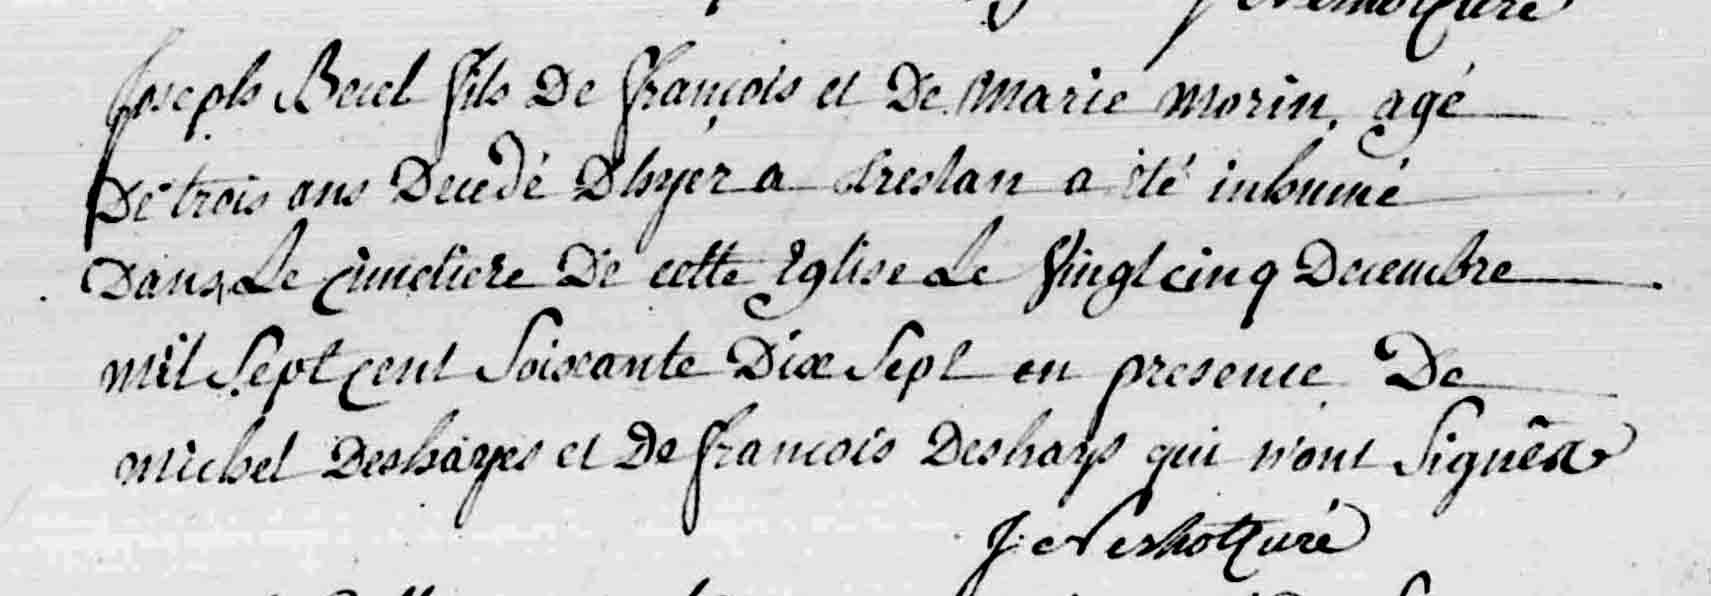 Joseph Becel fils De françois et De marie morin, agé
De trois ans Decedé D'hyer a Treslan a été inhumé
Dans Le cimetiere De cette Eglise Le vingt cinq Decembre
mil Sept cent Soixante Dix Sept en presence De
michel Deshayes et De françois Deshays qui n'ont Signés
J: Curé